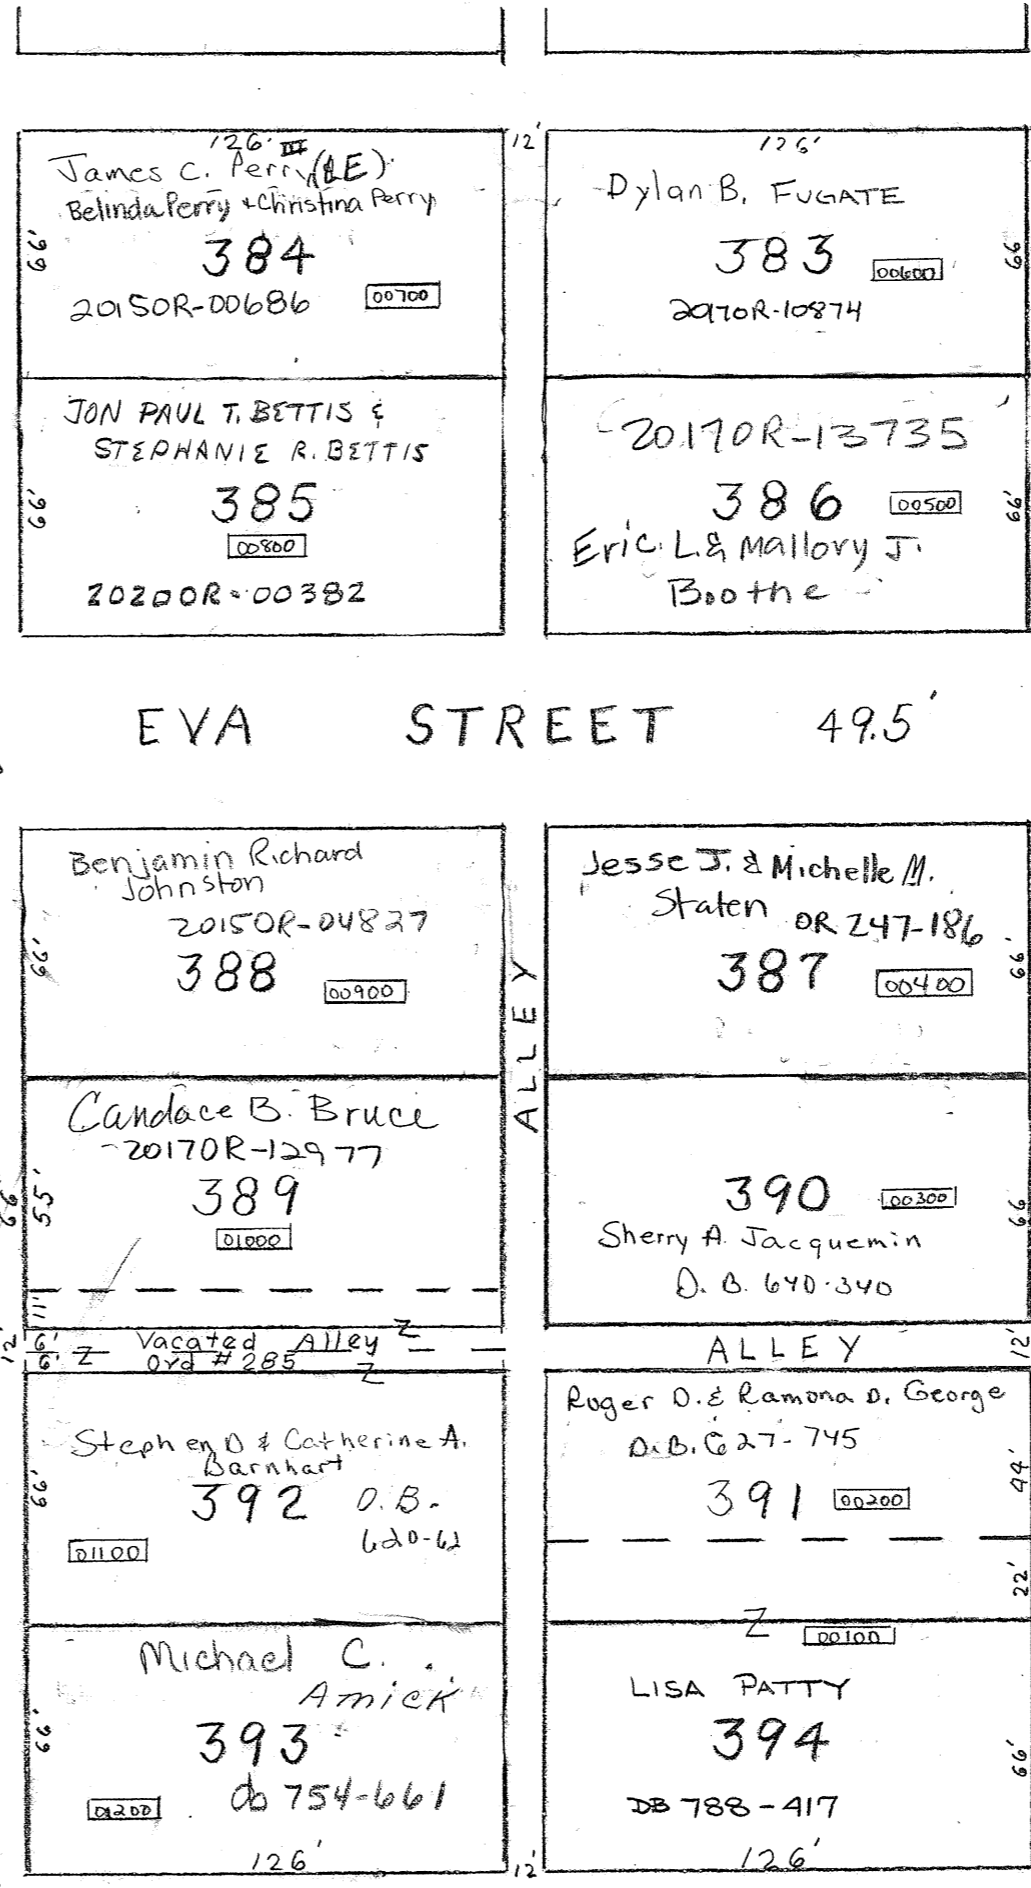 126'
James C. Perry III (LE)
Belinda Perry + Christina Perry
66'
384
2015OR-00686
00700
12'
126'
Dylan B. FUGATE
383
00600
66'
2017OR-10874
JON PAUL T. BETTIS &
STEPHANIE R. BETTIS
66'
385
00800
2020OR-00382
2017OR-13735
386
00500
66'
Eric L. & Mallory J.
Boothe
EVA STREET 49.5'
Benjamin Richard
Johnston
2015OR-04827
66'
388
00900
ALLEY
Jesse J. & Michelle M.
Staten
OR 247-186
387
00400
66'
Candace B. Bruce
2017OR-12977
66'
55'
389
01000
11'
390
00300
66
Sherry A. Jacquemin
D. B. 640-340
12'
6'
6'
Z
Vacated Alley
Z
Ord # 285
Z
ALLEY
12'
Stephen D & Catherine A.
Barnhart
66'
392
D.B.
620-62
01100
Roger D. & Ramona D. George
D.B. 627-745
391
00200
44'
22'
Michael C.
Amick
66'
393
01200
db 754-661
126'
12'
Z
00100
LISA PATTY
394
66'
DB 788-417
126'